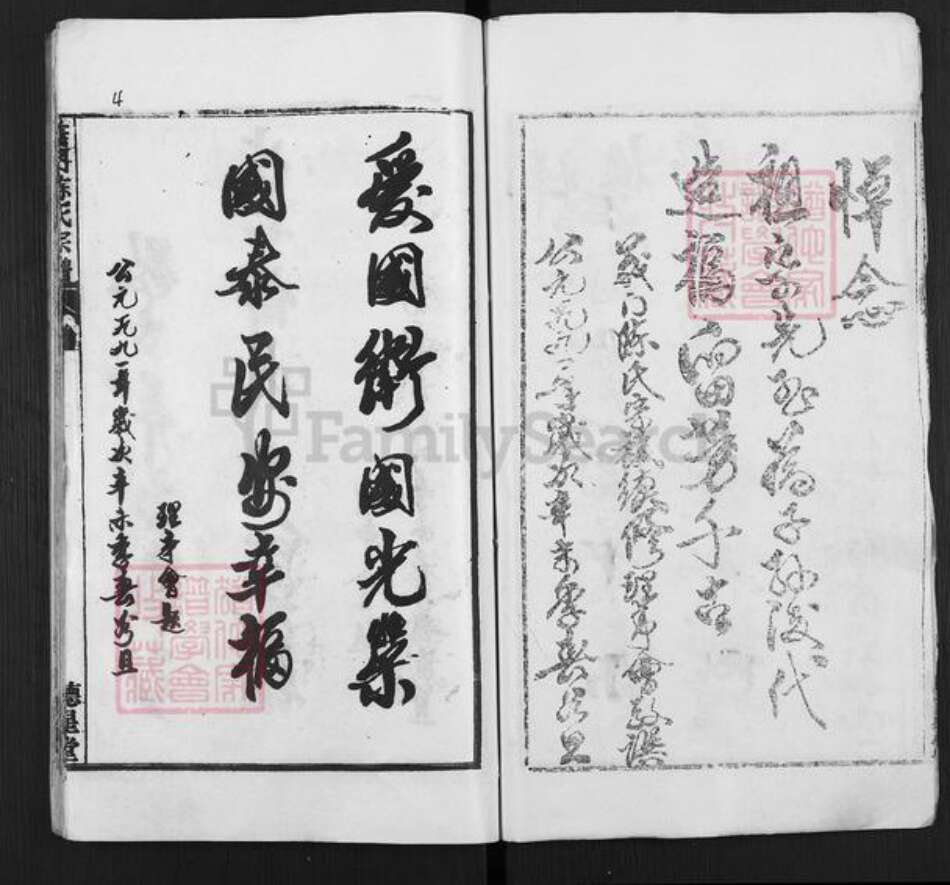 悼念
祖宗先烈蔭子孫後代
造福留芳千古
義门陈氏宗譜總修理事會敬撰
公元一九九一年歲次辛未季春谷旦
愛國衛國光榮
國泰民安幸福
理事會題
公元一九九一年歲次辛未季春谷旦
陈氏宗譜
德星堂
4
FamilySearch